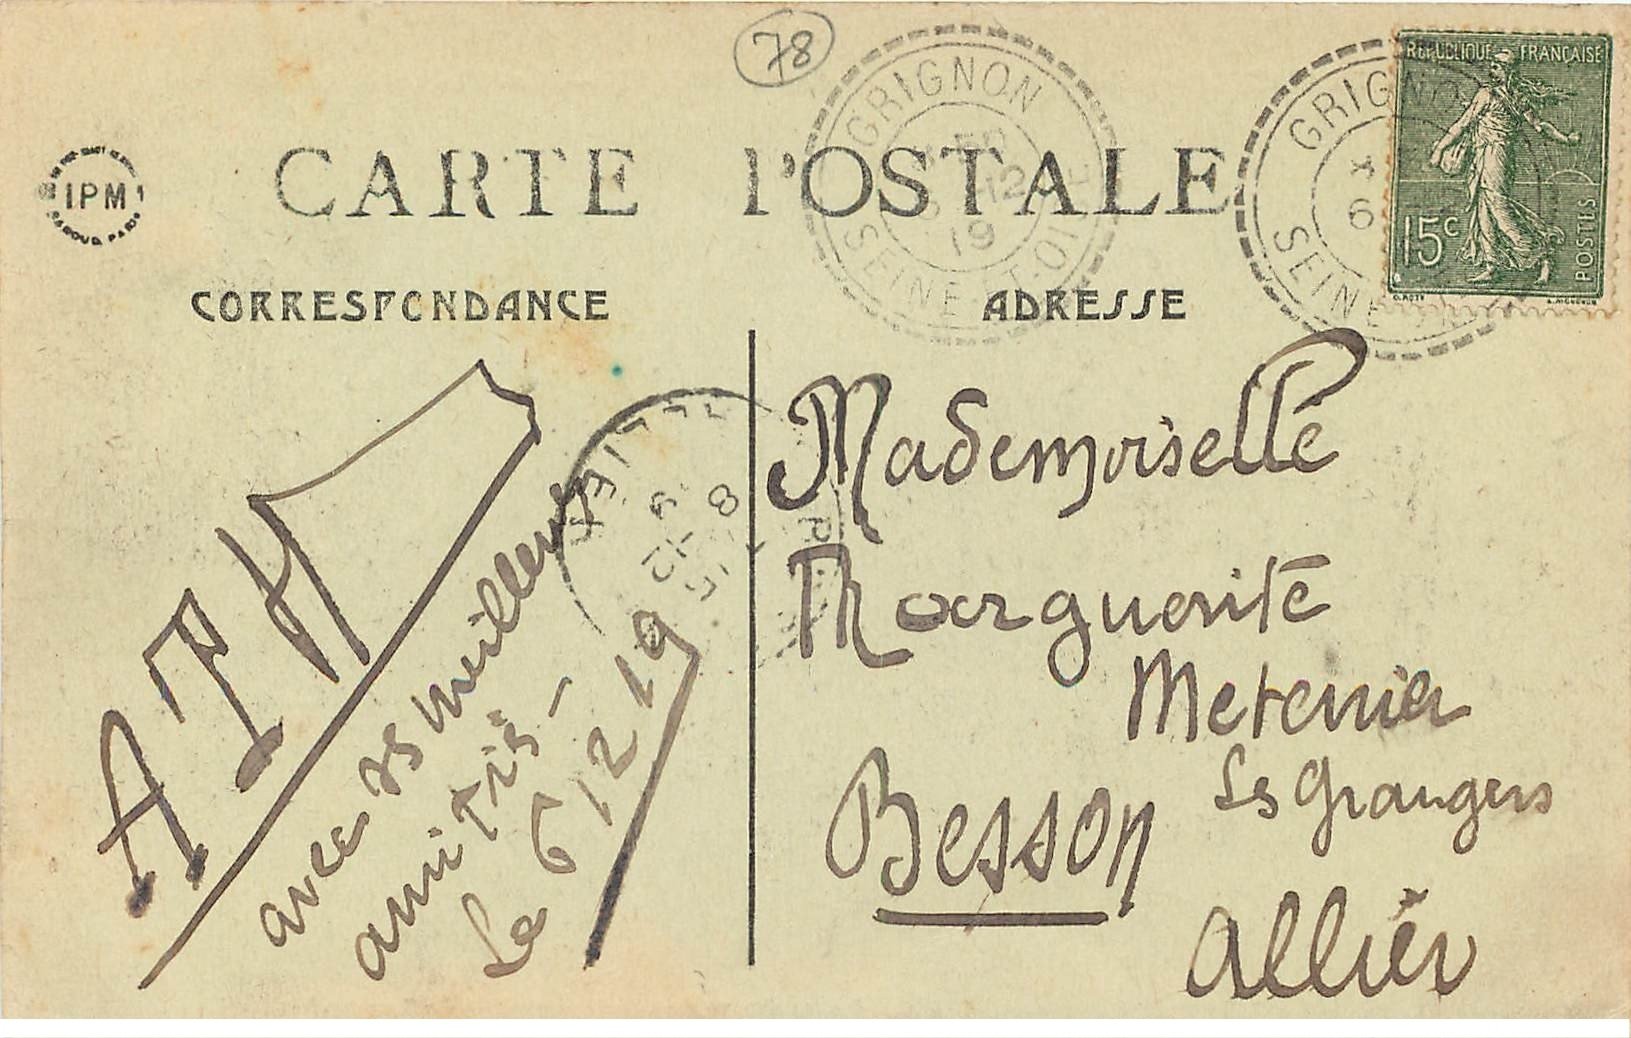 78
CARTE POSTALE
IPM
CORRESPONDANCE
ADRESSE
GRIGNON
12
19
SEINE-ET-OISE
GRIGNO
6
SEINE
RÉPUBLIQUE FRANÇAISE
15c
POSTES
O. ROTY
ATH
avec ses meilleures
amitiés –
Le 6 12 19
8
12
Mademoiselle
Marguerite
Metenier
Les Grangers
Besson
Allier